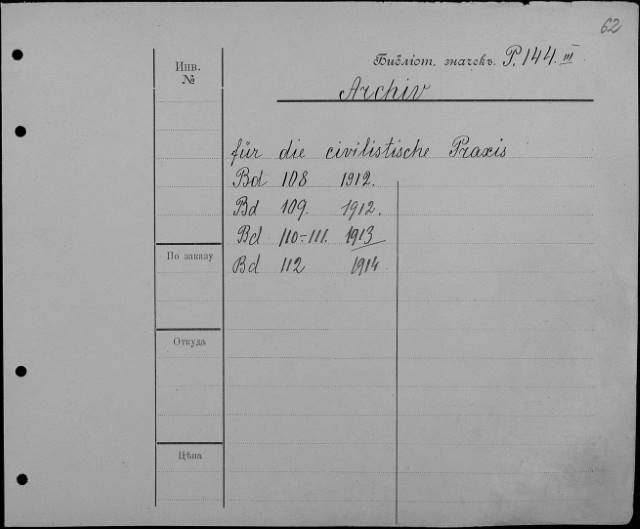 62
Инв. №
Библіот. значекъ. P. 144. III
Archiv
für die civilistische Praxis
Bd 108 1912.
Bd 109. 1912.
Bd 110-111. 1913
Bd 112 1914
По заказу
Откуда
Цѣна